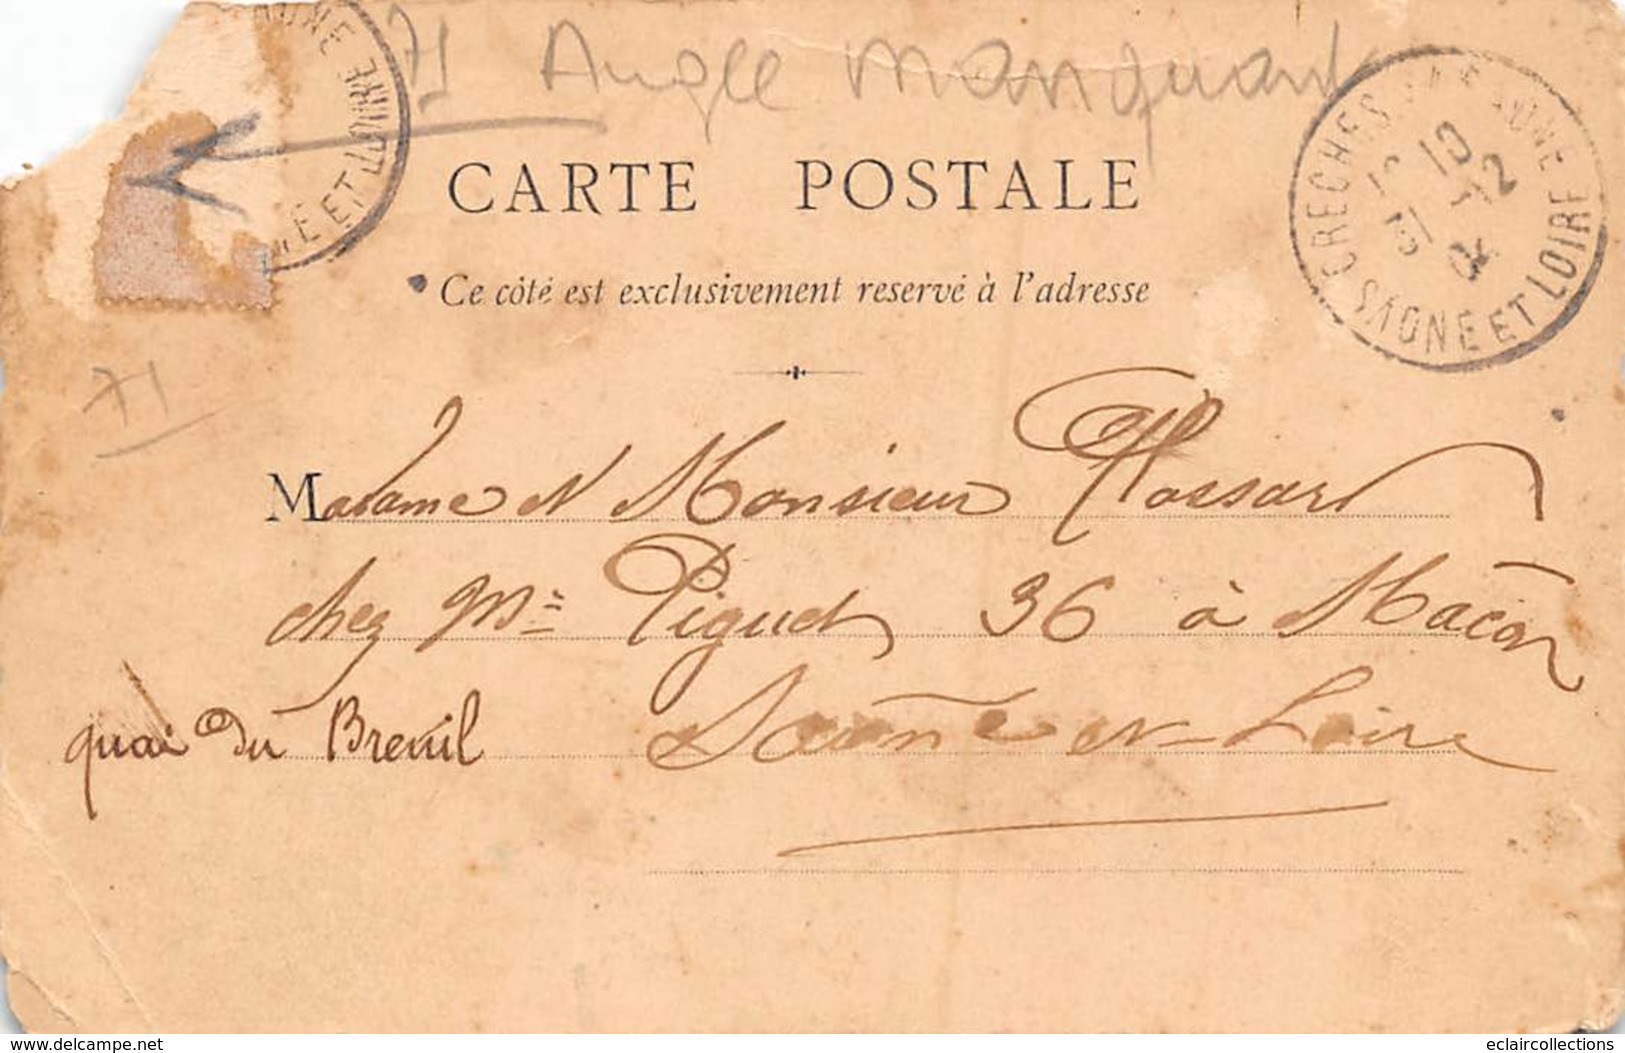 71 Angle manquant
CARTE POSTALE
Ce côté est exclusivement reservé à l'adresse
71
Madame et Monsieur
chez Mr Piguet 36 à Mâcon
quai du Breuil Saône et Loire
CRECHES SAONE
10
31 12
04
SAONE ET LOIRE
ONE
E ET LOIRE
www.delcampe.net
eclaircollections